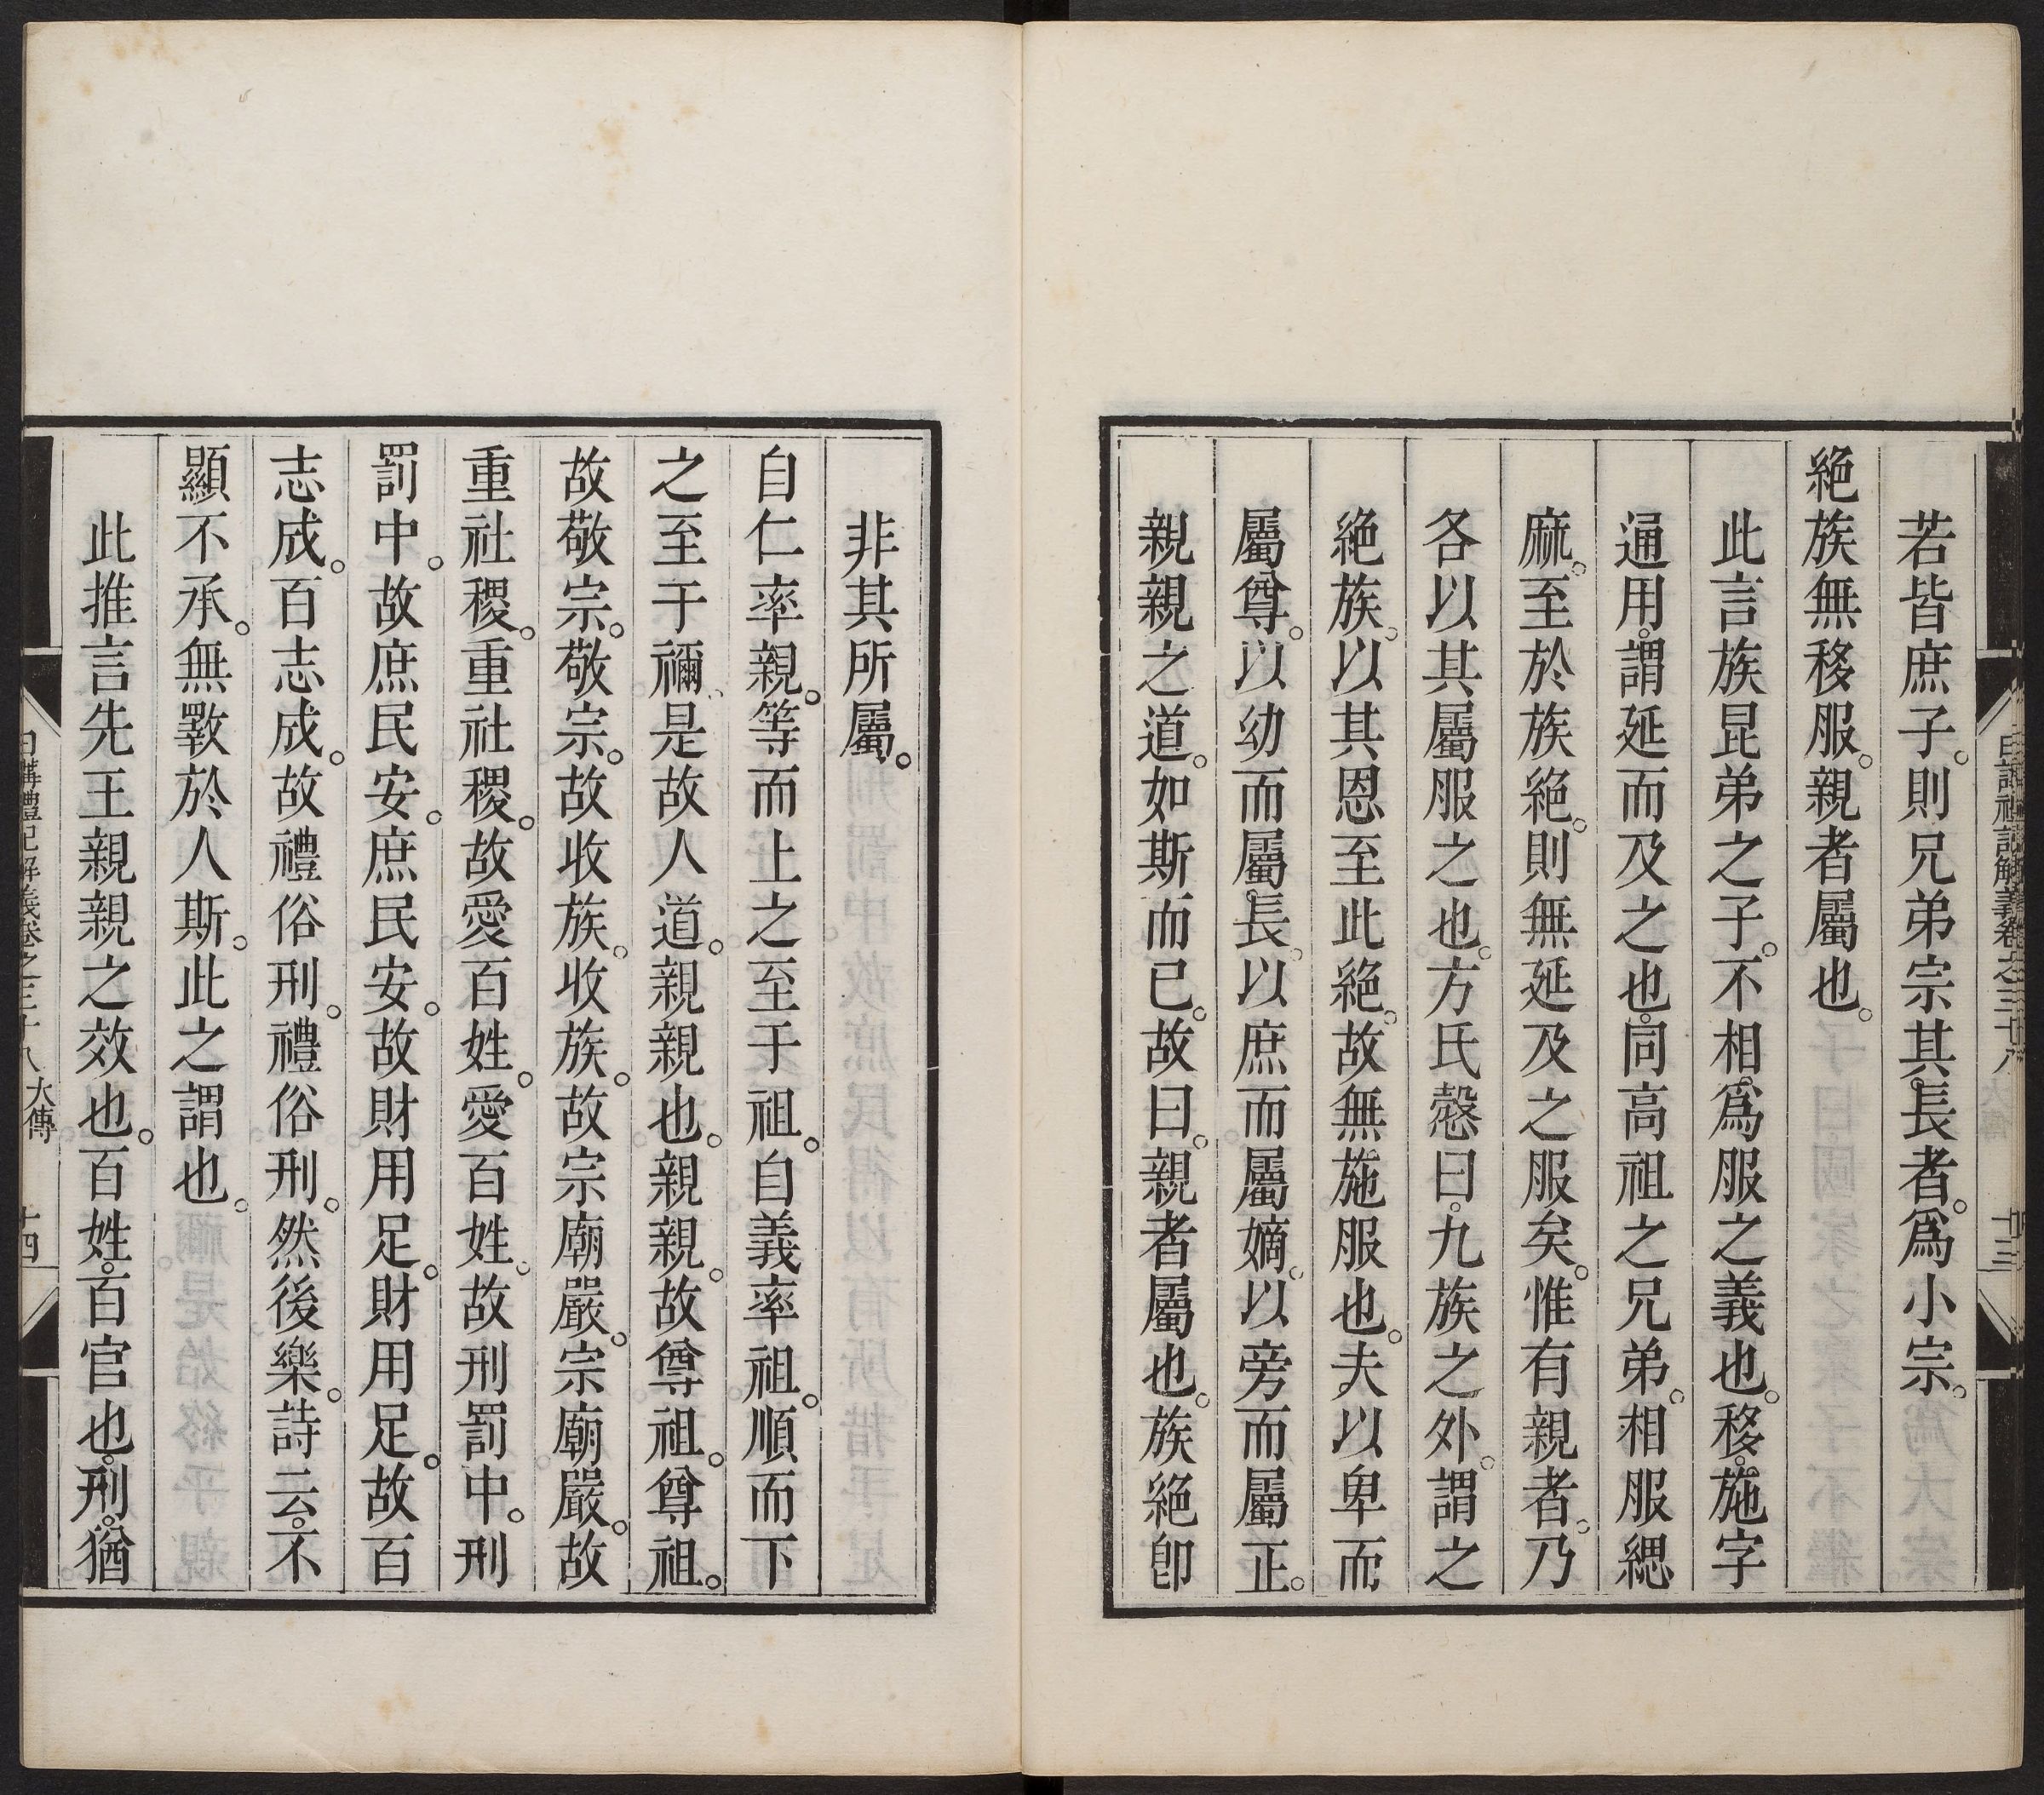 若皆庶子。則兄弟宗其長者。爲小宗。
絕族無移服。親者屬也。
此言族昆弟之子。不相爲服之義也。移。施字
通用。謂延而及之也。同高祖之兄弟。相服緦
麻。至於族絕。則無延及之服矣。惟有親者。乃
各以其屬服之也。方氏慤曰。九族之外。謂之
絕族。以其恩至此絕。故無施服也。夫以卑而
屬尊。以幼而屬長。以庶而屬嫡。以旁而屬正。
親親之道。如斯而已。故曰。親者屬也。族絕卽
非其所屬。
自仁率親。等而上之至于祖。自義率祖。順而下
之至于禰。是故人道。親親也。親親。故尊祖。尊祖。
故敬宗。敬宗。故收族。收族。故宗廟嚴。宗廟嚴。故
重社稷。重社稷。故愛百姓。愛百姓。故刑罰中。刑
罰中。故庶民安。庶民安。故財用足。財用足。故百
志成。百志成。故禮俗刑。禮俗刑。然後樂。詩云。不
顯不承。無斁於人斯。此之謂也。
此推言先王親親之效也。百姓。百官也。刑。猶
日講禮記解義卷之三十八 大傳 十四